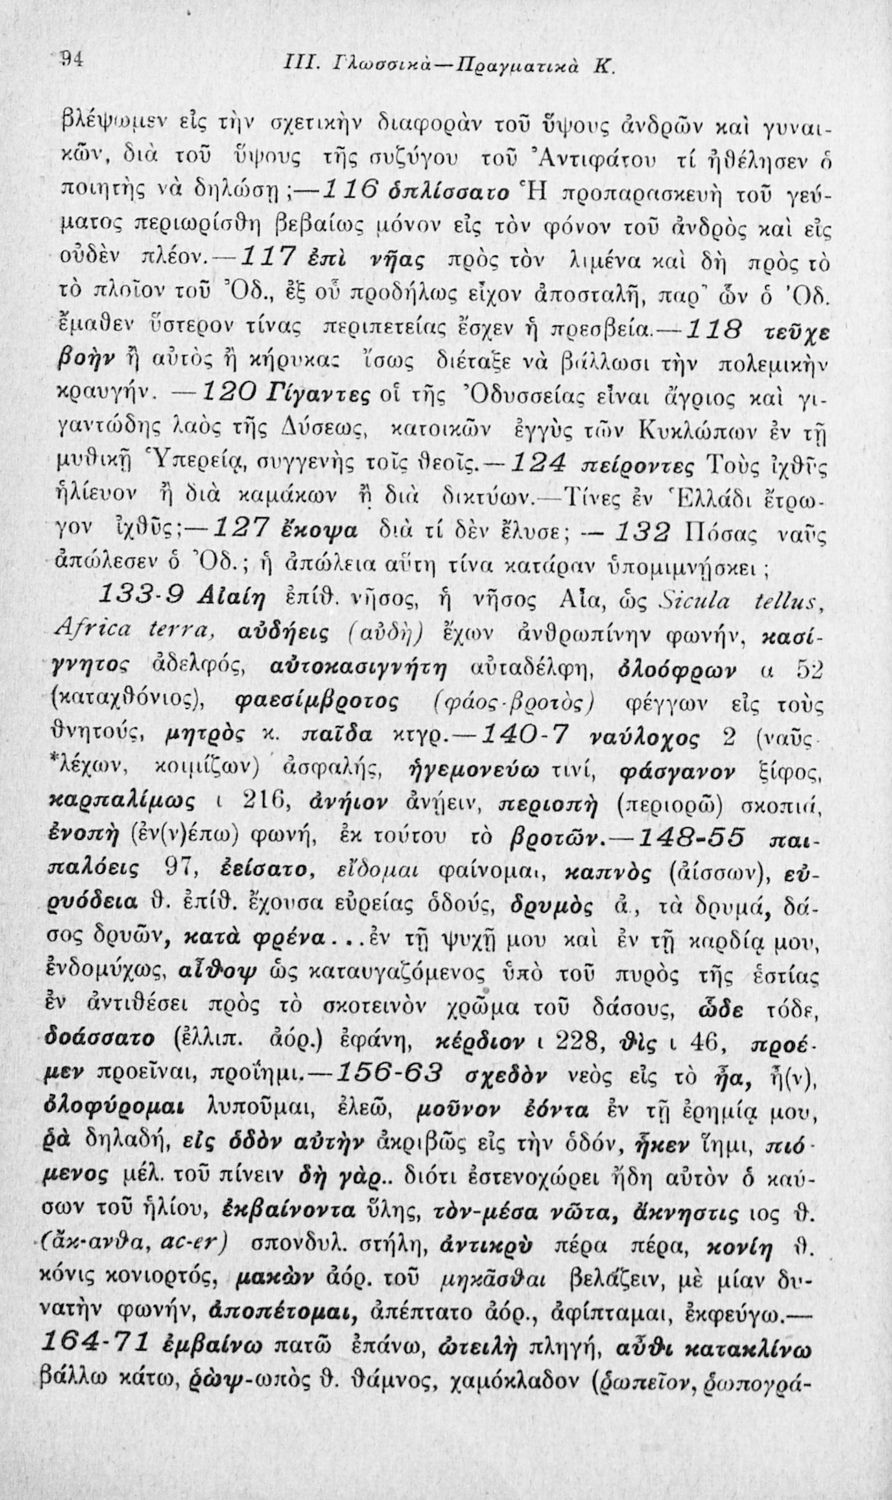 94
III. Γλωσσικὰ—Πραγματικὰ Κ.
βλέψωμεν εἰς τὴν σχετικὴν διαφορὰν τοῦ ὕψους ἀνδρῶν καὶ γυναι-
κῶν, διὰ τοῦ ὕψους τῆς συζύγου τοῦ Ἀντιφάτου τί ἠθέλησεν ὁ
ποιητὴς νὰ δηλώσῃ ;—116 ὁπλίσσατο Ἡ προπαρασκευὴ τοῦ γεύ-
ματος περιωρίσθη βεβαίως μόνον εἰς τὸν φόνον τοῦ ἀνδρὸς καὶ εἰς
οὐδὲν πλέον.—117 ἐπὶ νῆας πρὸς τὸν λιμένα καὶ δὴ πρὸς τὸ
τὸ πλοῖον τοῦ Ὀδ., ἐξ οὗ προδήλως εἶχον ἀποσταλῆ, παρ' ὧν ὁ Ὀδ.
ἔμαθεν ὕστερον τίνας περιπετείας ἔσχεν ἡ πρεσβεία.—118 τεῦχε
βοὴν ἢ αὐτὸς ἢ κήρυκας ἴσως διέταξε νὰ βάλλωσι τὴν πολεμικὴν
κραυγήν. —120 Γίγαντες οἱ τῆς Ὀδυσσείας εἶναι ἄγριος καὶ γι-
γαντώδης λαὸς τῆς Δύσεως, κατοικῶν ἐγγὺς τῶν Κυκλώπων ἐν τῇ
μυθικῇ Ὑπερείᾳ, συγγενὴς τοῖς θεοῖς.—124 πείροντες Τοὺς ἰχθῦς
ἡλίευον ἢ διὰ καμάκων ἢ διὰ δικτύων.—Τίνες ἐν Ἑλλάδι ἔτρω-
γον ἰχθῦς;—127 ἔκοψα διὰ τί δὲν ἔλυσε; — 132 Πόσας ναῦς
ἀπώλεσεν ὁ Ὀδ.; ἡ ἀπώλεια αὕτη τίνα κατάραν ὑπομιμνῄσκει ;
133-9 Αἰαίη ἐπίθ. νῆσος, ἡ νῆσος Αἶα, ὡς Sicula tellus,
Africa terra, αὐδήεις (αὐδὴ) ἔχων ἀνθρωπίνην φωνήν, κασί-
γνητος ἀδελφός, αὐτοκασιγνήτη αὐταδέλφη, ὀλοόφρων α 52
(καταχθόνιος), φαεσίμβροτος (φάος-βροτὸς) φέγγων εἰς τοὺς
θνητούς, μητρὸς κ. παῖδα κτγρ.—140-7 ναύλοχος 2 (ναῦς-
*λέχων, κοιμίζων) ἀσφαλής, ἡγεμονεύω τινί, φάσγανον ξίφος,
καρπαλίμως ι 216, ἀνήιον ἀνῄειν, περιοπὴ (περιορῶ) σκοπιά,
ἐνοπὴ (ἐν(ν)έπω) φωνή, ἐκ τούτου τὸ βροτῶν.—148-55 παι-
παλόεις 97, ἐείσατο, εἴδομαι φαίνομαι, καπνὸς (ἀίσσων), εὐ-
ρυόδεια θ. ἐπίθ. ἔχουσα εὐρείας ὁδούς, δρυμὸς ἀ, τὰ δρυμά, δά-
σος δρυῶν, κατὰ φρένα...ἐν τῇ ψυχῇ μου καὶ ἐν τῇ καρδίᾳ μου,
ἐνδομύχως, αἶθοψ ὡς καταυγαζόμενος ὑπὸ τοῦ πυρὸς τῆς ἑστίας
ἐν ἀντιθέσει πρὸς τὸ σκοτεινὸν χρῶμα τοῦ δάσους, ὧδε τόδε,
δοάσσατο (ἐλλιπ. ἀόρ.) ἐφάνη, κέρδιον ι 228, θὶς ι 46, προέ-
μεν προεῖναι, προΐημι.—156-63 σχεδὸν νεὸς εἰς τὸ ἦα, ἦ(ν),
ὀλοφύρομαι λυποῦμαι, ἐλεῶ, μοῦνον ἐόντα ἐν τῇ ἐρημίᾳ μου,
ῥὰ δηλαδή, εἰς ὁδὸν αὐτὴν ἀκριβῶς εἰς τὴν ὁδόν, ἧκεν ἵημι, πιό-
μενος μέλ. τοῦ πίνειν δὴ γὰρ.. διότι ἐστενοχώρει ἤδη αὐτὸν ὁ καύ-
σων τοῦ ἡλίου, ἐκβαίνοντα ὕλης, τὸν-μέσα νῶτα, ἄκνηστις ιος θ.
(ἄκ-ανθα, ac-er) σπονδυλ. στήλη, ἀντικρὺ πέρα πέρα, κονίη θ.
κόνις κονιορτός, μακὼν ἀόρ. τοῦ μηκᾶσθαι βελάζειν, μὲ μίαν δυ-
νατὴν φωνήν, ἀποπέτομαι, ἀπέπτατο ἀόρ., ἀφίπταμαι, ἐκφεύγω.—
164-71 ἐμβαίνω πατῶ ἐπάνω, ὠτειλὴ πληγή, αὖθι κατακλίνω
βάλλω κάτω, ῥὼψ-ωπὸς θ. θάμνος, χαμόκλαδον (ῥωπεῖον, ῥωπογρά-